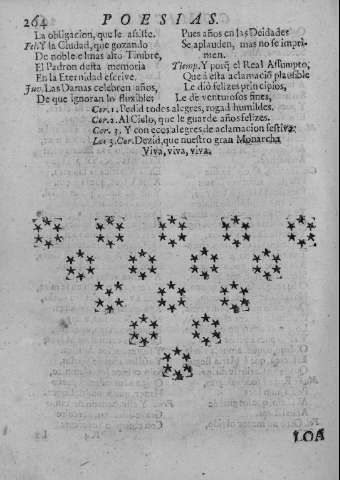 264 POESIAS.
La obligacion, que les assiste.
Feli. Y la Ciudad, que gozando
De noble, e lmas alto Timbre,
El Padron desta memoria
En la Eternidad escrive.
Juv. Las Damas celebren años,
De que ignoran lo fluxible;
Pues años en las Deidades
Se aplauden, mas no se impri-
men.
Tiemp. Y pues q̃ el Real Assumpto,
Que à esta aclamaciõ plausible
Le diò felizes principios,
Le de venturosos fines,
Cor. 1. Pedid todos alegres, rogad humildes.
Cor. 2. Al Cielo, que le guarde años felizes.
Cor. 3. Y con ecos alegres de aclamacion festiva.
Los 3. Cor. Dezid, que nuestro gran Monarcha
Viva, viva, viva.
LOA